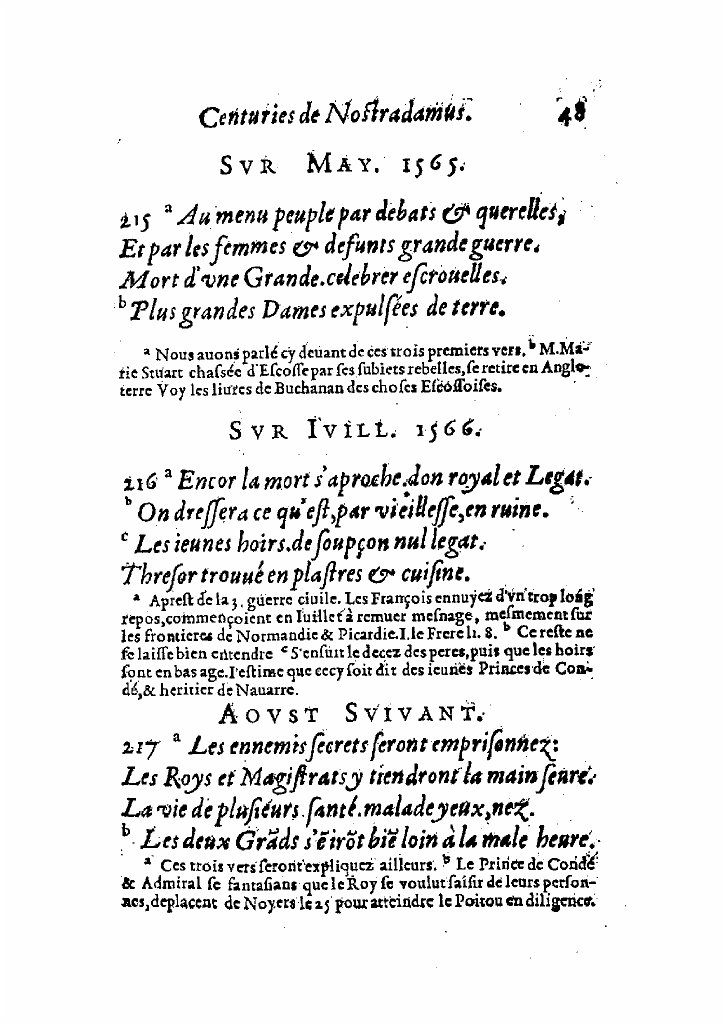 Centuries de Nostradamus. 48
SVR MAY. 1565.
215 ᵃ Au menu peuple par debats & querelles,
Et par les femmes & defunts grande guerre.
Mort d'vne Grande.celebrer escrouelles.
ᵇ Plus grandes Dames expulsées de terre.
ᵃ Nous auons parlé cy deuant de ces trois premiers vers. ᵇ M.Ma-
rie Stuart chassée d'Escosse par ses subiets rebelles, se retire en Anglo-
terre Voy les liures de Buchanan des choses Escossoises.
SVR IVILL. 1566.
216 ᵃ Encor la mort s'aproche.don royal et Legat.
ᵇ On dressera ce qu'est,par vieillesse,en ruine.
ᶜ Les ieunes hoirs.de soupçon nul legat.
Thresor trouué en plastres & cuisine.
ᵃ Aprest de la 3. guerre ciuile. Les François ennuyez d'vn trop long
repos,commençoient en Iuillet à remuer mesnage, mesmement sur
les frontieres de Normandie & Picardie.I.le Frere li. 8. ᵇ Ce reste ne
se laisse bien entendre ᶜ S'ensuit le decez des peres,puis que les hoirs
sont en bas age.I'estime que cecy soit dit des ieunes Princes de Con-
dé,& heritier de Nauarre.
AOVST SVIVANT.
217 ᵃ Les ennemis secrets seront emprisonnez:
Les Roys et Magistrats y tiendront la main seure.
La vie de plusieurs.santé.malade yeux,nez.
ᵇ Les deux Grãds s'ẽ irõt biẽ loin à la male heure.
ᵃ Ces trois vers seront expliquez ailleurs. ᵇ Le Prince de Condé
& Admiral se fantasians que le Roy se voulut saisir de leurs person-
nes,deplacent de Noyers le 25 pour atteindre le Poitou en diligence.